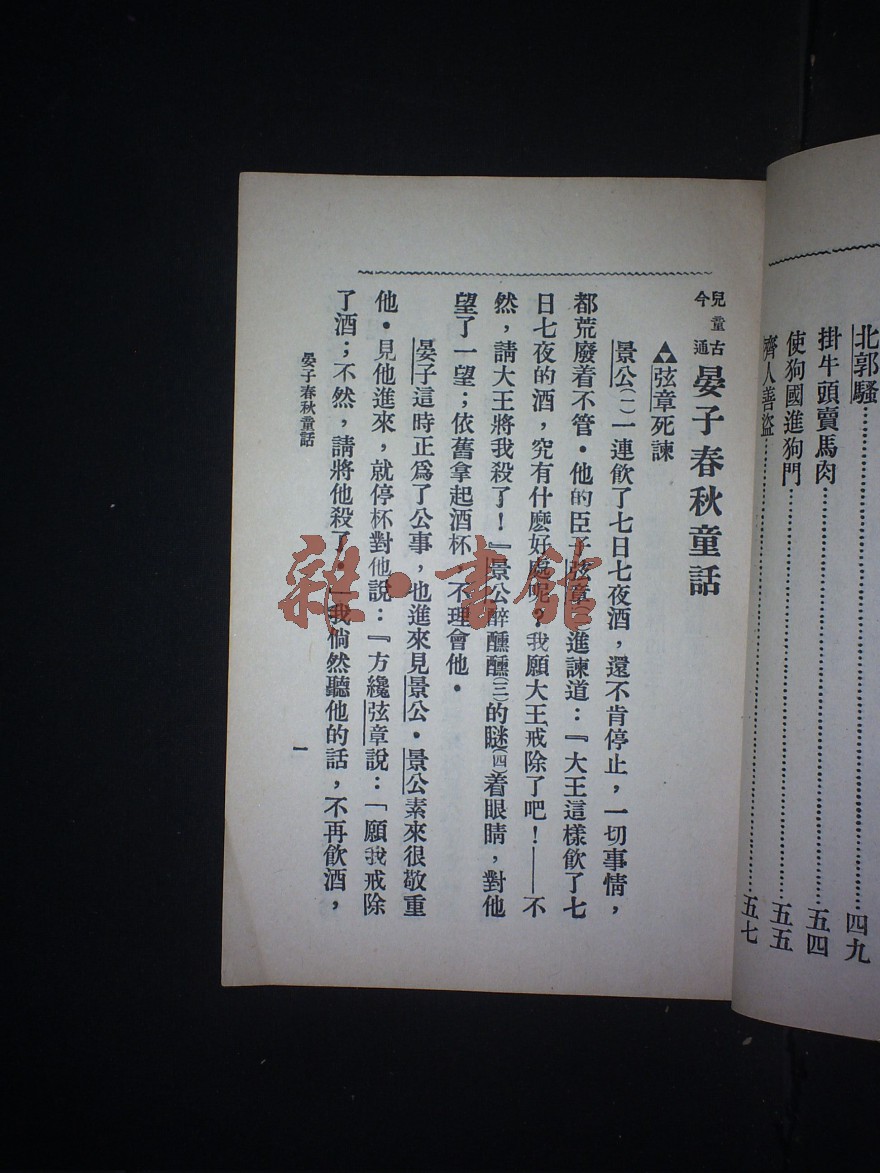 北郭騷…………四九
掛牛頭賣馬肉…………五四
使狗國進狗門…………五五
齊人善盜…………五七
兒童古今通
晏子春秋童話
弦章死諫
景公(一)一連飲了七日七夜酒，還不肯停止，一切事情，
都荒廢着不管．他的臣子弦章進諫道：『大王這樣飲了七
日七夜的酒，究有什麽好處呢？我願大王戒除了吧！——不
然，請大王將我殺了！』景公醉醺醺(三)的瞇(四)着眼睛，對他
望了一望；依舊拿起酒杯，不理會他．
晏子這時正爲了公事，也進來見景公．景公素來很敬重
他．見他進來，就停杯對他說：『方纔弦章說：「願我戒除
了酒；不然，請將他殺了．」我倘然聽他的話，不再飲酒，
晏子春秋童話
一
雜·書館